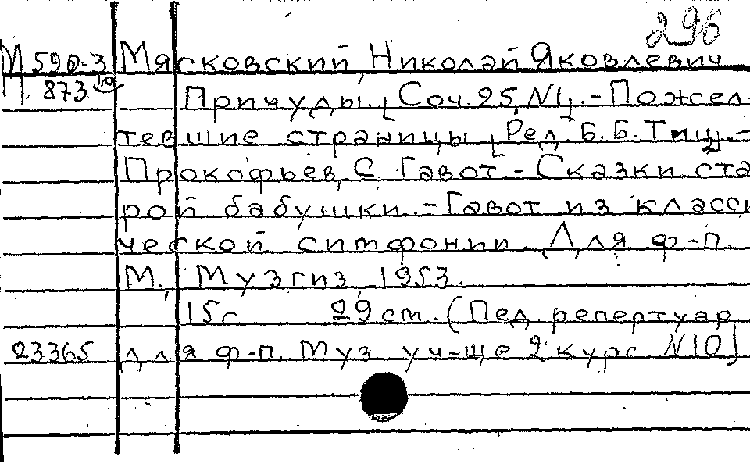 296
М 590-3 Мясковский, Николай Яковлевич
П 873 Причуды [Соч. 25, N1]. - Пожел-
тевшие страницы [Ред. Б.Б. -
Прокофьев, С. Гавот - Сказки ста
рой бабушки. - Гавот из класси
ческой симфонии. Для ф-п.
М., Музгиз 1953.
15с 29 см. (Пед. репертуар
23365 для ф-п. Муз уч-ще 2 курс N10)